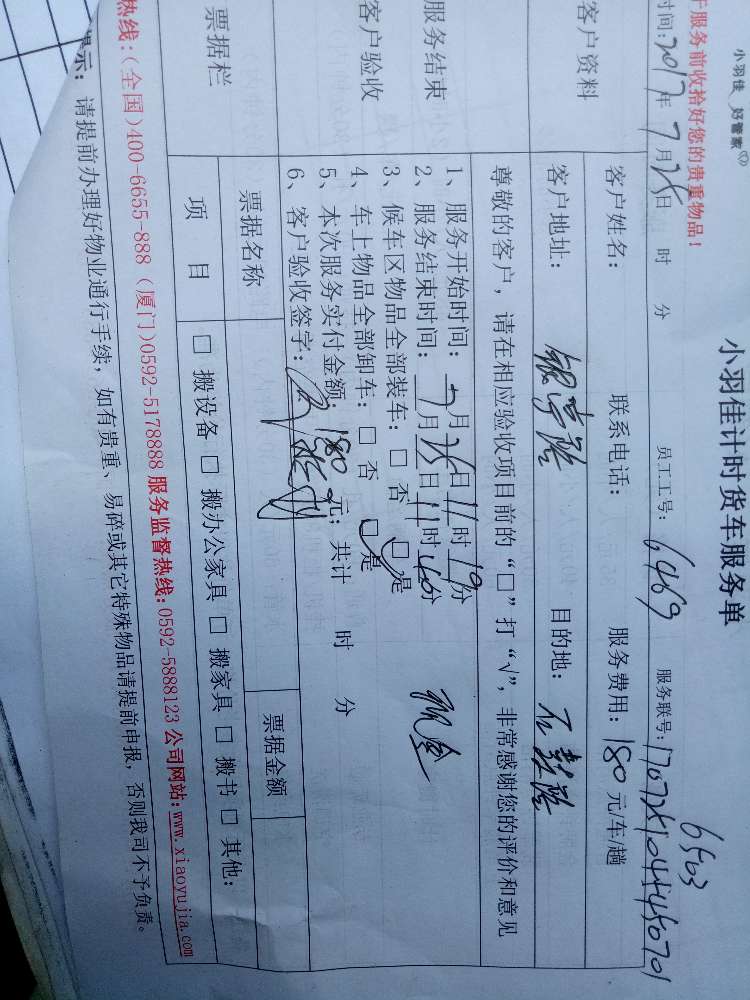 小羽佳 好管家
小羽佳计时货车服务单
于服务前收拾好您的贵重物品！
6503
时间：2017年7月25日 时 分 员工工号：6469 服务联号：
客户资料
客户姓名： 联系电话： 服务费用：180元/车/趟
客户地址： 目的地：
尊敬的客户，请在相应验收项目前的“□”打“√”，非常感谢您的评价和意见
服务结束
客户验收
1、服务开始时间：7月25日11时19分
2、服务结束时间：7月25日11时40分
3、候车区物品全部装车：□否 □是
4、车上物品全部卸车：□否 □是
5、本次服务实付金额：180元；共计 时 分
6、客户验收签字：
票据栏
票据名称 票据金额
项 目 □ 搬设备 □ 搬办公家具 □ 搬家具 □ 搬书 □ 其他：
热线：(全国)400-6655-888 (厦门)0592-5178888 服务监督热线：0592-5888123 公司网站：www.xiaoyujia.com
提示：请提前办理好物业通行手续，如有贵重、易碎或其它特殊物品请提前申报，否则我司不予负责。